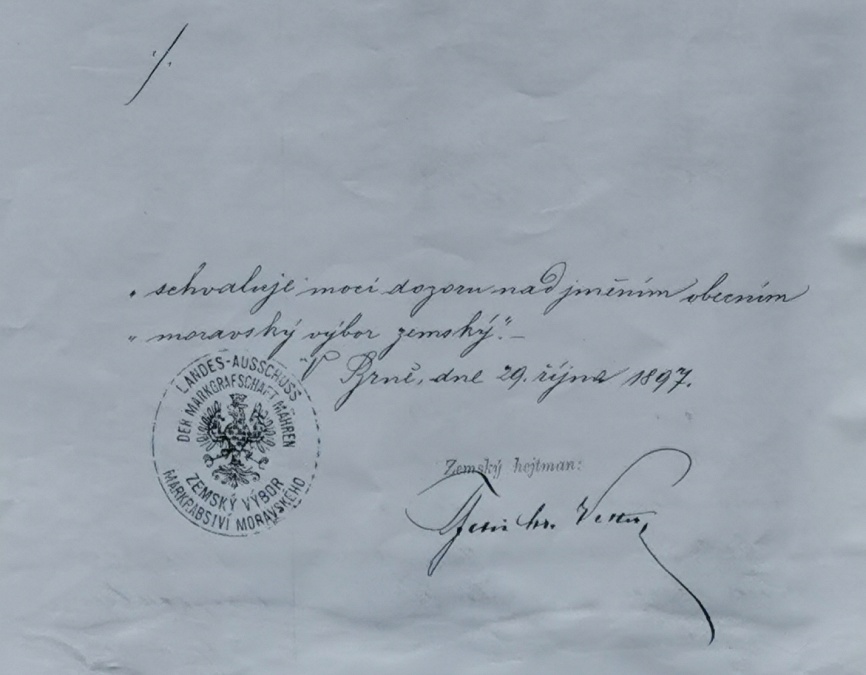 ./.
„ schvaluje mocí dozoru nad jměním obecním
„ moravský výbor zemský“. –
V Brně, dne 29. října 1897.
LANDES-AUSSCHUSS
DER MARKGRAFSCHAFT MÄHREN
ZEMSKÝ VÝBOR
MARKRABSTVÍ MORAVSKÉHO
Zemský hejtman:
Felix hr. Vetter